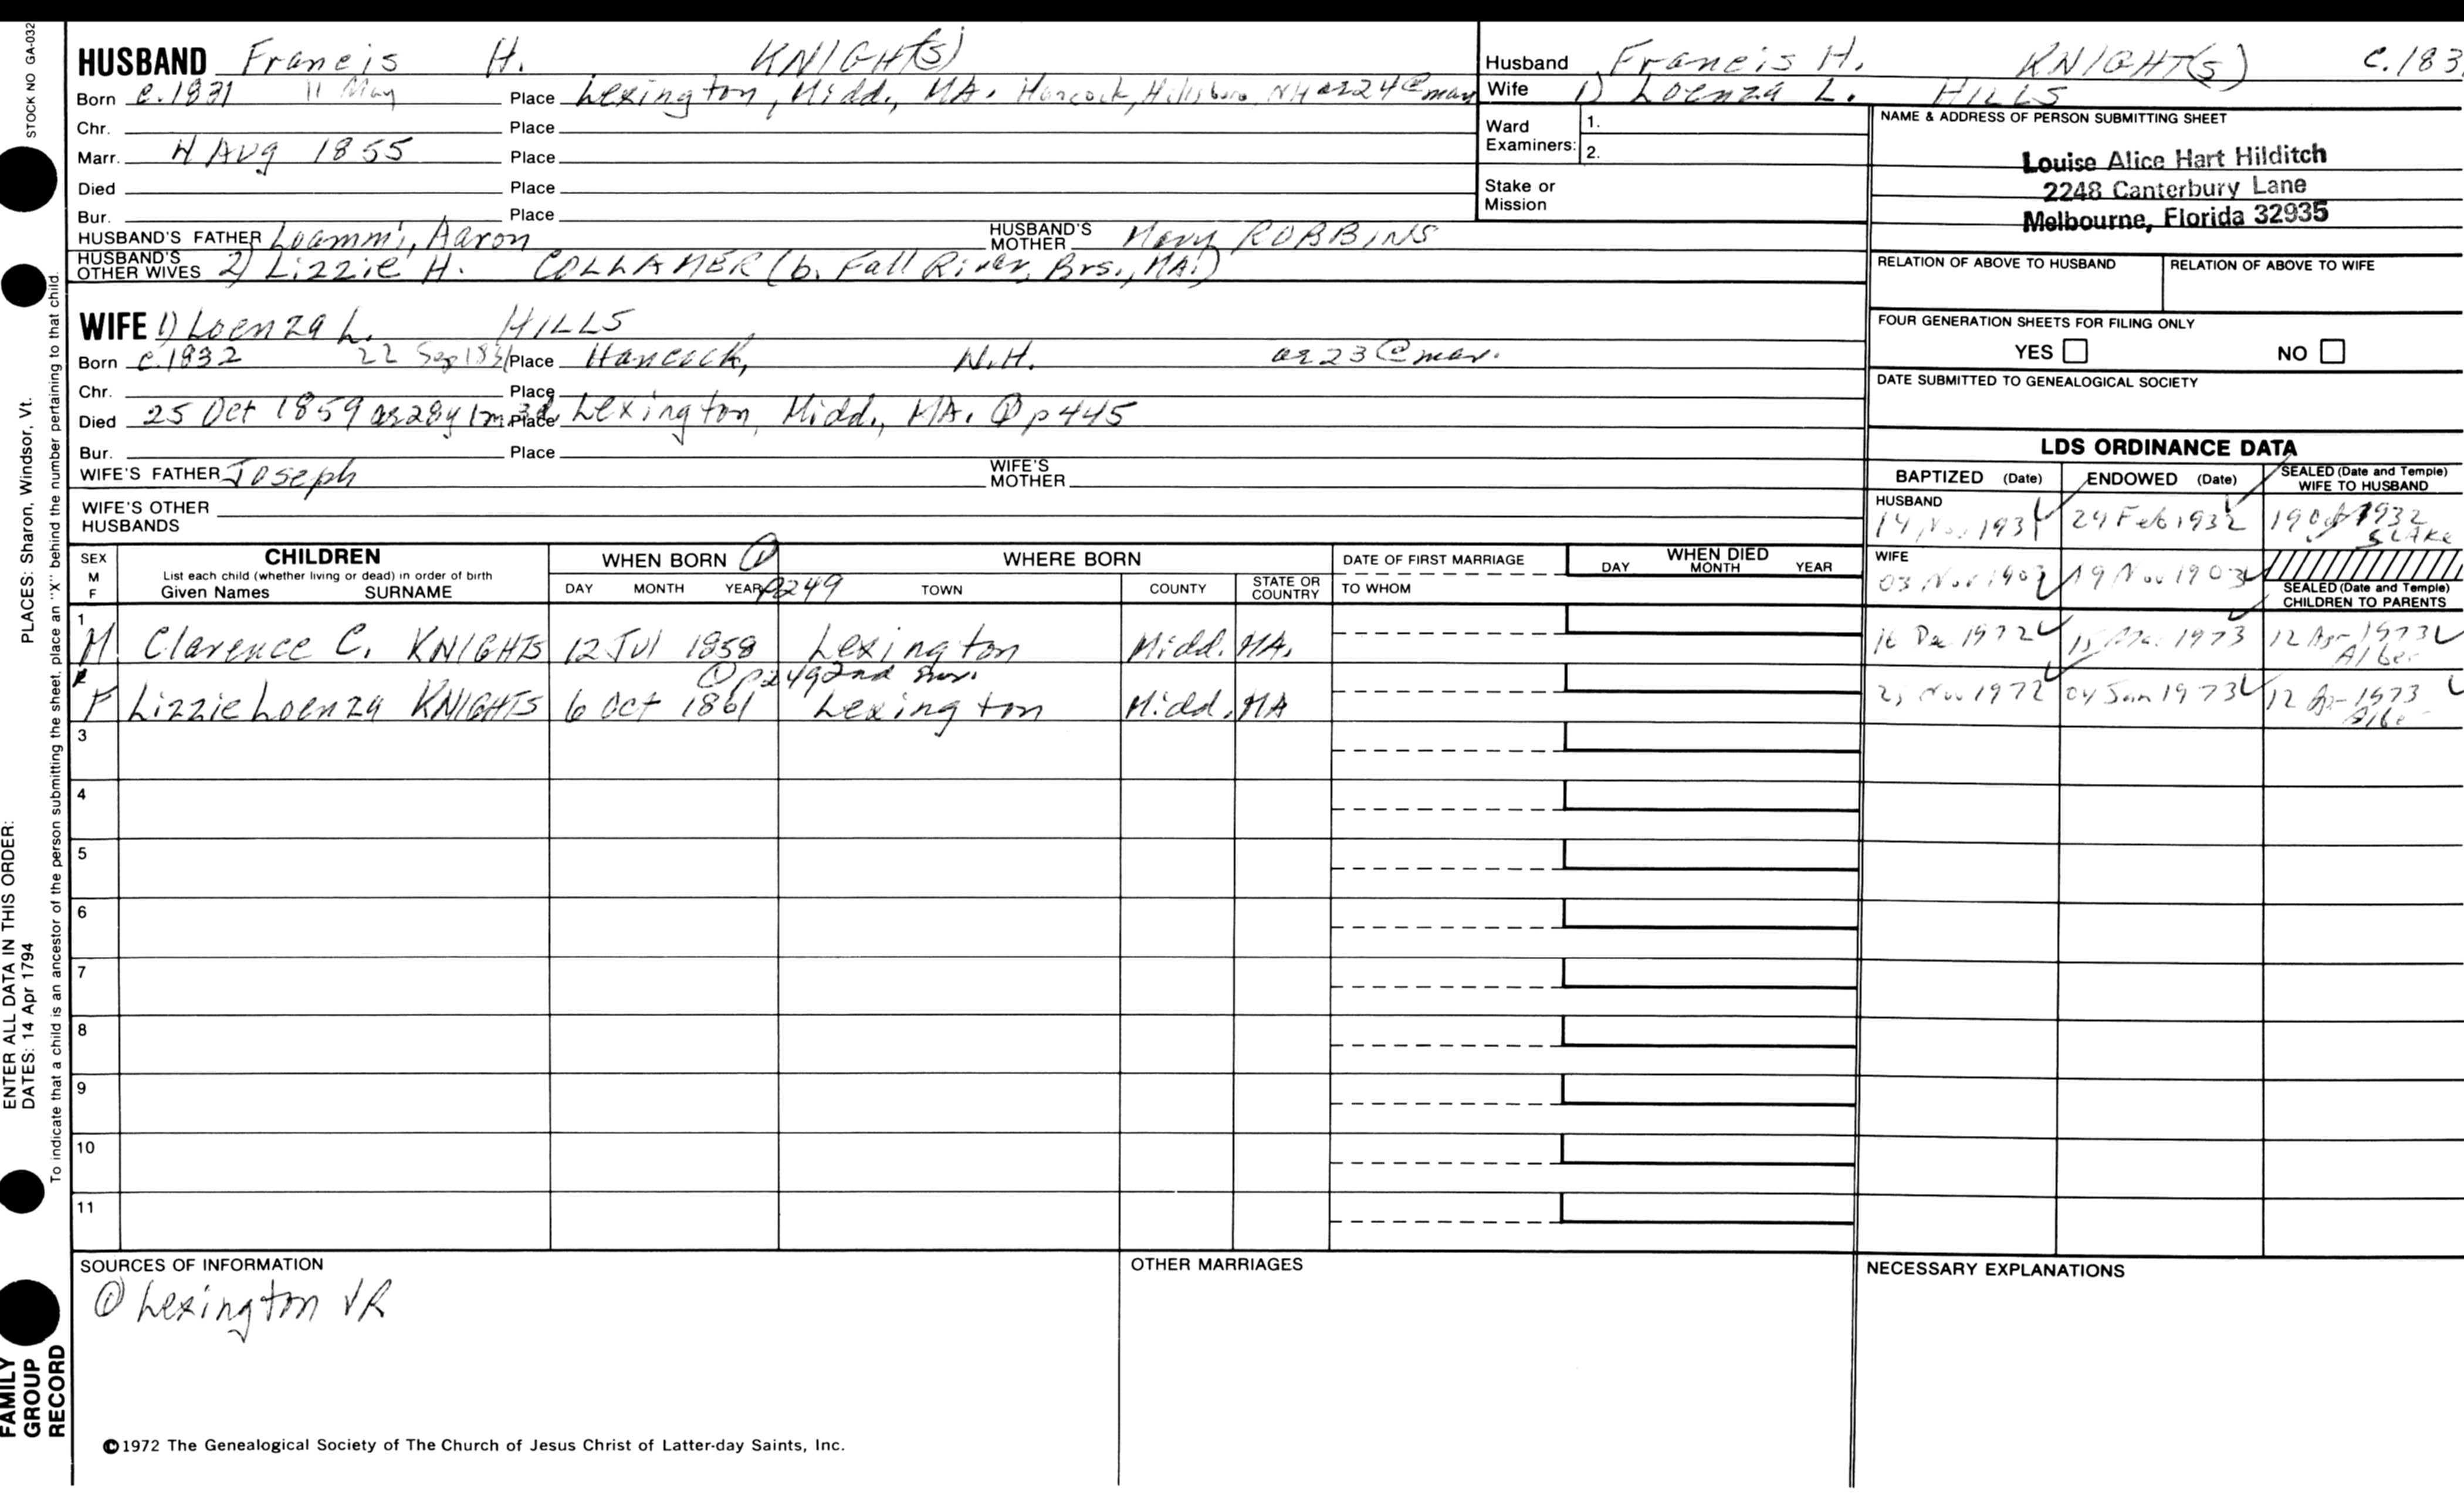 STOCK NO GA-032
PLACES: Sharon, Windsor, Vt.
ENTER ALL DATA IN THIS ORDER:
DATES: 14 Apr 1794
To indicate that a child is an ancestor of the person submitting the sheet, place an "X" behind the number pertaining to that child.
FAMILY
GROUP
RECORD
HUSBAND Francis H. KNIGHT(S)
Born c.1831 11 May Place Lexington, Midd., MA. Hancock, Hillsboro, NH as24@mar
Chr. Place
Marr. 4 Aug 1855 Place
Died Place
Bur. Place
HUSBAND'S FATHER Loammi, Aaron HUSBAND'S MOTHER Mary ROBBINS
HUSBAND'S OTHER WIVES 2) Lizzie H. COLLAMER (b. Fall River, Brs., MA.)
WIFE 1) Loenza L. HILLS
Born c.1832 22 Sep 1831 Place Hancock, N.H. as23@mar.
Chr. Place
Died 25 Oct 1859 as28y 1m 3d Place Lexington, Midd., MA. ① p445
Bur. Place
WIFE'S FATHER Joseph WIFE'S MOTHER
WIFE'S OTHER HUSBANDS
Husband Francis H. KNIGHT(S) c.183
Wife 1) Loenza L. HILLS
Ward Examiners: 1.
2.
Stake or Mission
NAME & ADDRESS OF PERSON SUBMITTING SHEET
Louise Alice Hart Hilditch
2248 Canterbury Lane
Melbourne, Florida 32935
RELATION OF ABOVE TO HUSBAND RELATION OF ABOVE TO WIFE
FOUR GENERATION SHEETS FOR FILING ONLY
YES NO
DATE SUBMITTED TO GENEALOGICAL SOCIETY
LDS ORDINANCE DATA
BAPTIZED (Date) ENDOWED (Date) SEALED (Date and Temple) WIFE TO HUSBAND
HUSBAND
14 Nov 1931 24 Feb 1932 19 Oct 1932
SLAKE
WIFE
03 Nov 1903 19 Nov 1903
SEALED (Date and Temple) CHILDREN TO PARENTS
SEX M F
CHILDREN
List each child (whether living or dead) in order of birth
Given Names SURNAME
WHEN BORN ①
DAY MONTH YEAR p249
WHERE BORN
TOWN COUNTY STATE OR COUNTRY
DATE OF FIRST MARRIAGE
TO WHOM
WHEN DIED
DAY MONTH YEAR
1
M Clarence C. KNIGHTS 12 Jul 1858 Lexington Midd. MA. 16 Dec 1972 15 Mar 1973 12 Apr 1973
Alber
① p249 2nd
F Lizzie Loenza KNIGHTS 6 Oct 1861 Lexington Midd. MA Nov 1972 04 Jan 1973 12 Apr 1973
Albe
3
4
5
6
7
8
9
10
11
SOURCES OF INFORMATION
① Lexington VR
OTHER MARRIAGES
NECESSARY EXPLANATIONS
©1972 The Genealogical Society of The Church of Jesus Christ of Latter-day Saints, Inc.